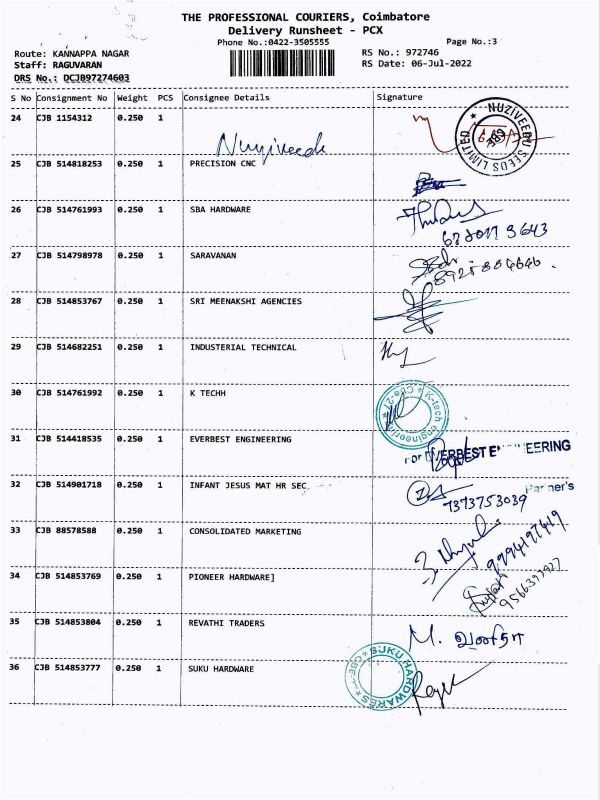 THE PROFESSIONAL COURIERS, Coimbatore
Delivery Runsheet - PCX
Phone No.:0422-3505555
Page No.:3
Route: KANNAPPA NAGAR
RS No.: 972746
Staff: RAGUVARAN
RS Date: 06-Jul-2022
DRS No.: DCJB97274603
S No Consignment No Weight PCS Consignee Details Signature
24 CJB 1154312 0.250 1 Nuziveedu
NUZIVEEDU SEEDS LIMITED CBE
25 CJB 514818253 0.250 1 PRECISION CNC
26 CJB 514761993 0.250 1 SBA HARDWARE
27 CJB 514798978 0.250 1 SARAVANAN
28 CJB 514853767 0.250 1 SRI MEENAKSHI AGENCIES
29 CJB 514682251 0.250 1 INDUSTERIAL TECHNICAL
30 CJB 514761992 0.250 1 K TECHH
K-tech engineering Cbe-27
31 CJB 514418535 0.250 1 EVERBEST ENGINEERING
For EVERBEST ENGINEERING
32 CJB 514901718 0.250 1 INFANT JESUS MAT HR SEC
Partner's
7373753039
33 CJB 88578588 0.250 1 CONSOLIDATED MARKETING
9994197649
34 CJB 514853769 0.250 1 PIONEER HARDWARE]
35 CJB 514853804 0.250 1 REVATHI TRADERS
M. வனிதா
36 CJB 514853777 0.250 1 SUKU HARDWARE
SUKU HARDWARES